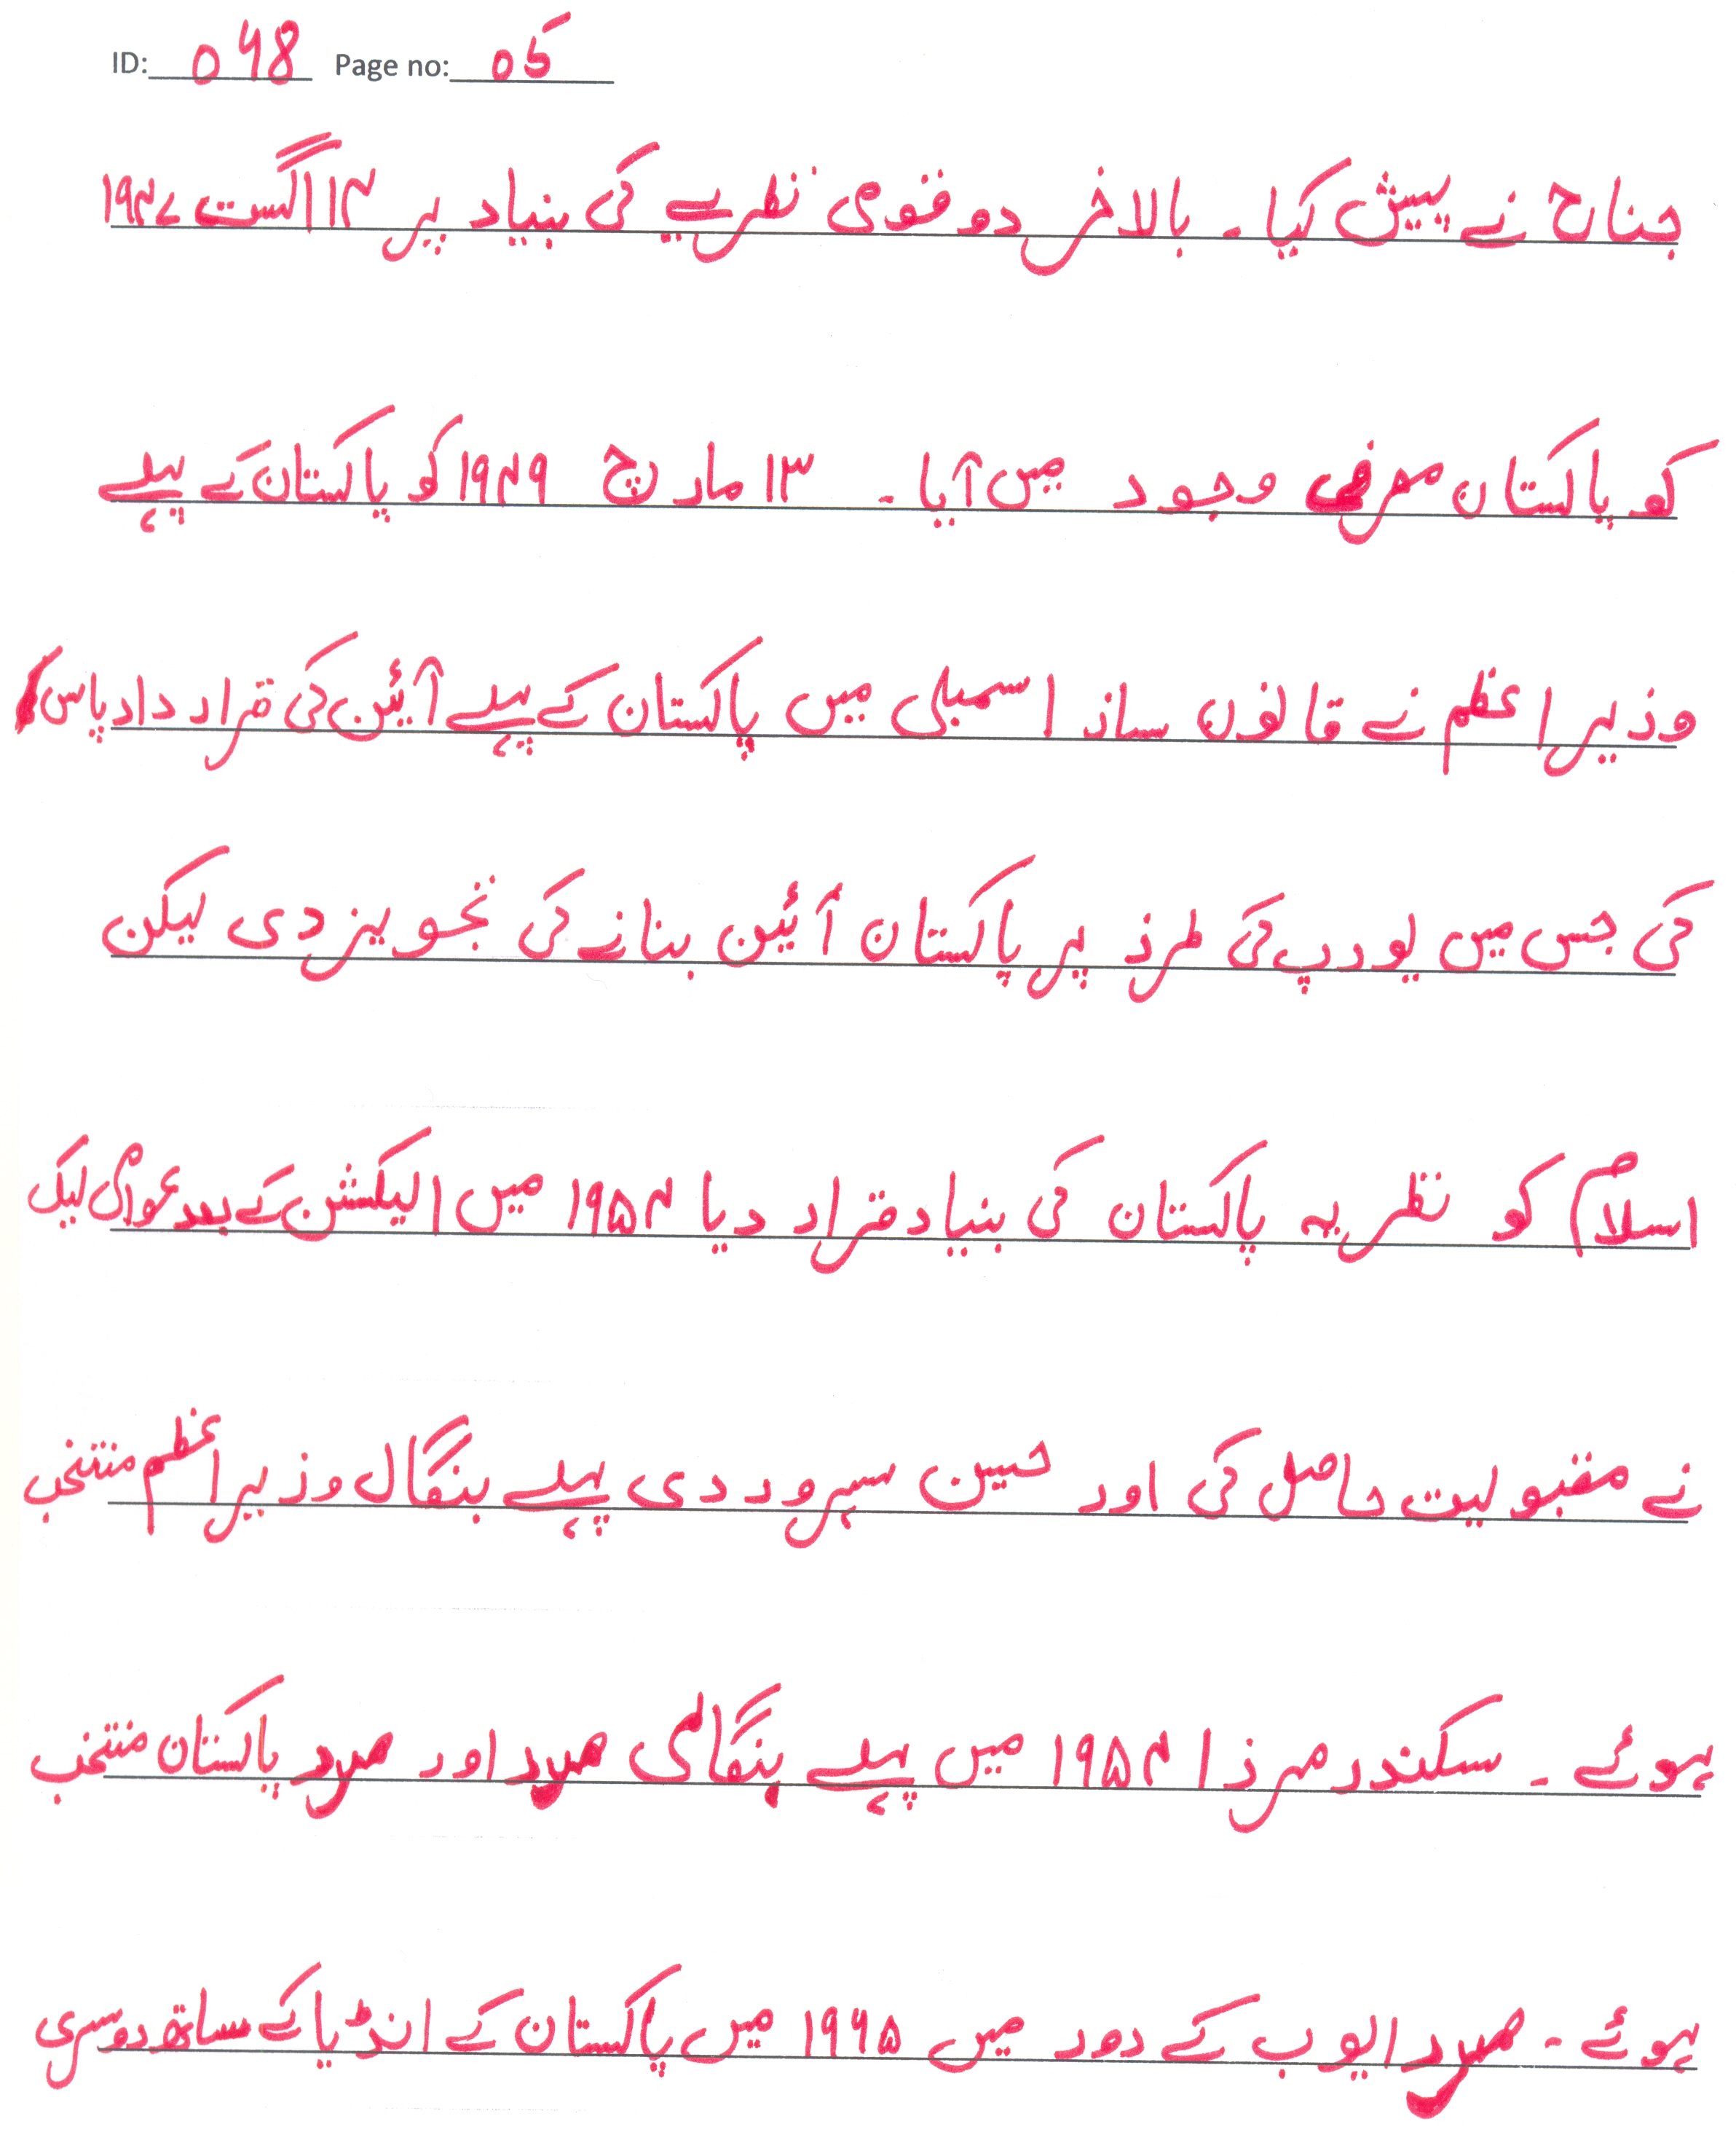 ID: 048 Page no: 05
جناح نے پیش کیا۔ بالاخر دو قومی نظریے کی بنیاد پر ۱۴ اگست ۱۹۴۷
کو پاکستان معرضِ وجود میں آیا۔ ۱۳ مارچ ۱۹۴۹ کو پاکستان کے پہلے
وزیر اعظم نے قانون ساز اسمبلی میں پاکستان کے پہلے آئین کی قرارداد پاس
کی جس میں یورپ کی طرز پر پاکستان آئین بنانے کی تجویز دی لیکن
اسلام کو نظریہ پاکستان کی بنیاد قرار دیا ۱۹۵۴ میں الیکشن کے بعد عوامی لیگ
نے مقبولیت حاصل کی اور حسین سہروردی پہلے بنگال وزیر اعظم منتخب
ہوئے۔ سکندر مرزا ۱۹۵۴ میں پہلے بنگالی صدر اور صدر پاکستان منتخب
ہوئے۔ صدر ایوب کے دور میں ۱۹۶۵ میں پاکستان کے انڈیا کے ساتھ دوسری